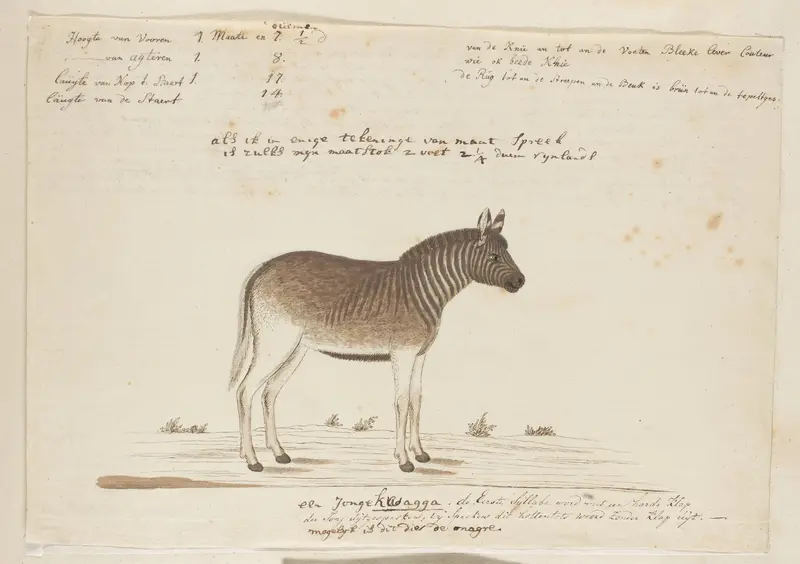 duimen
Hoogte van Vooren 1. Maate en 7 1/2
van agteren 1. 8.
Langte van Kop t. Staert 1. 17
Langte van de Staert 14
van de Knie an tot an de Voeten Bleeke Lever Couleur
wie ok beede Knie
de Rug tot an de streepen an de Beuk is bruin tot an de tepeltjes.
als ik in enige tekeninge van maat spreek
is zulks myn maatstok 2 voet 2 1/4 duim rynlands
een Jonge kwagga. de Eerste Syllabe word met een harde Klap
der Tong uijtgesproken, bij dit hottentots woord zonder Klap
mogelyk is dit dier de onagre.